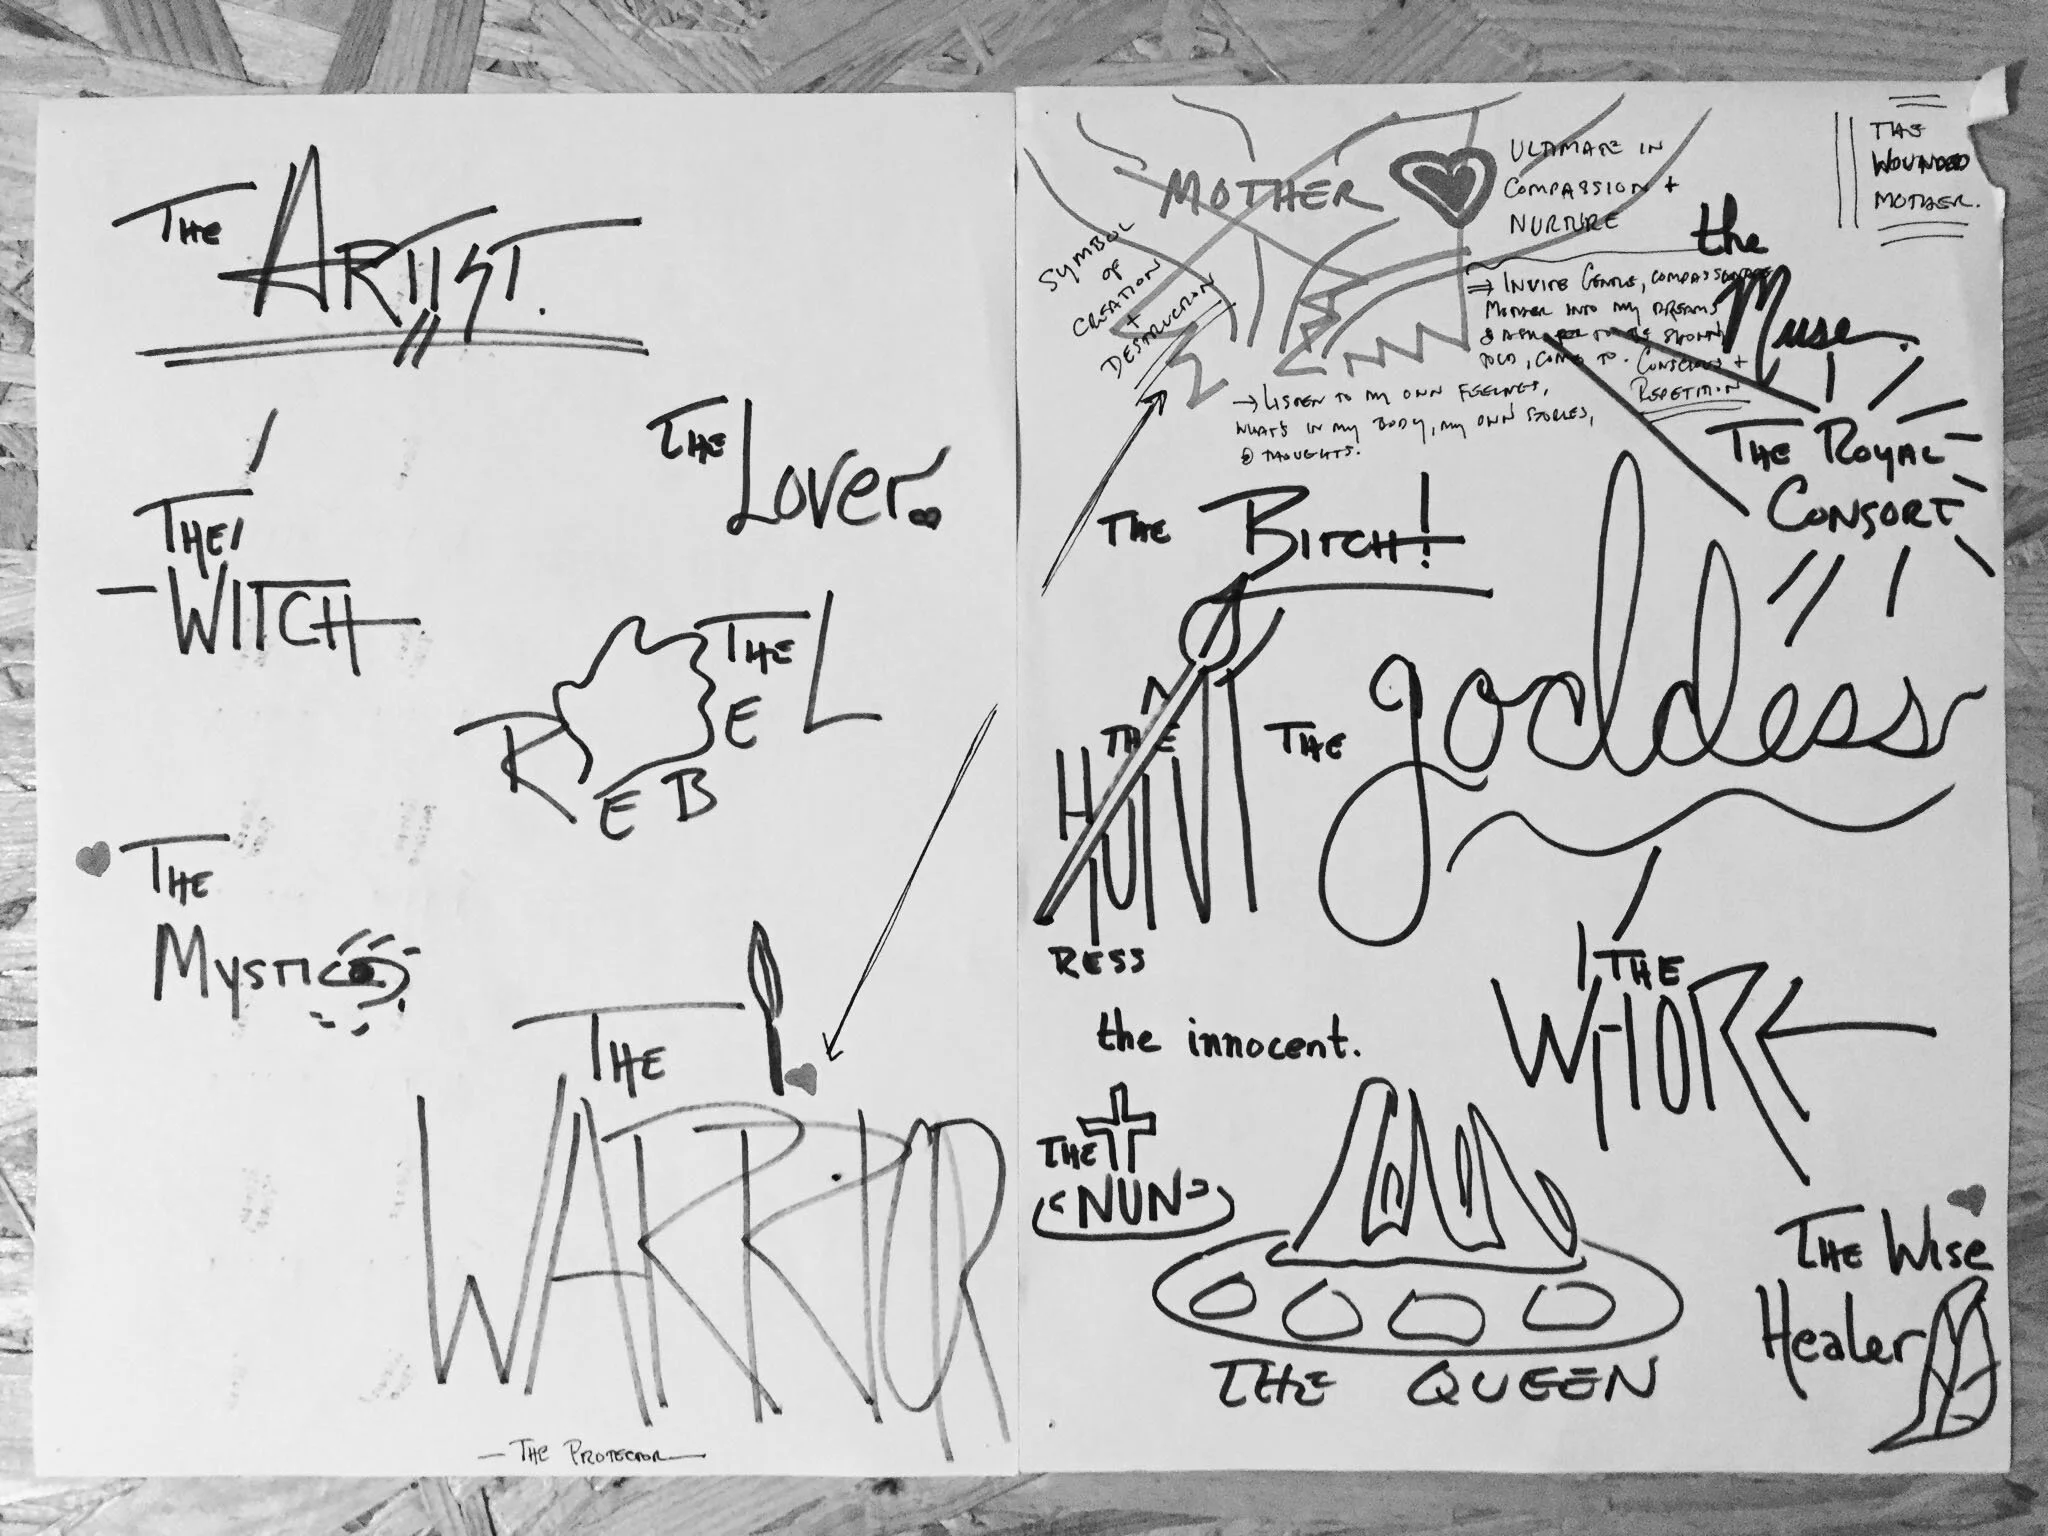 THE ARTIST.
THE
LOVER.
THE
WITCH
THE
REBEL
THE
MYSTIC
THE
WARRIOR
— THE PROTECTOR —
MOTHER
ULTIMATE IN
COMPASSION +
NURTURE
THE
WOUNDED
MOTHER.
SYMBOL
OF
CREATION
+
DESTRUCTION
the
Muse.
⇒ INVITE GENTLE, COMPASSIONATE
MOTHER INTO MY DREAMS
& ASK HER TO BE SHOWN,
TOLD, COME TO. CONSCIOUS +
REPETITION
→ LISTEN TO MY OWN FEELINGS,
WHAT'S IN MY BODY, MY OWN STORIES,
& THOUGHTS.
THE ROYAL
CONSORT
THE BITCH!
THE
HUNT
RESS
THE goddess
THE
WHORE
the innocent.
THE
NUN
THE QUEEN
THE WISE
Healer